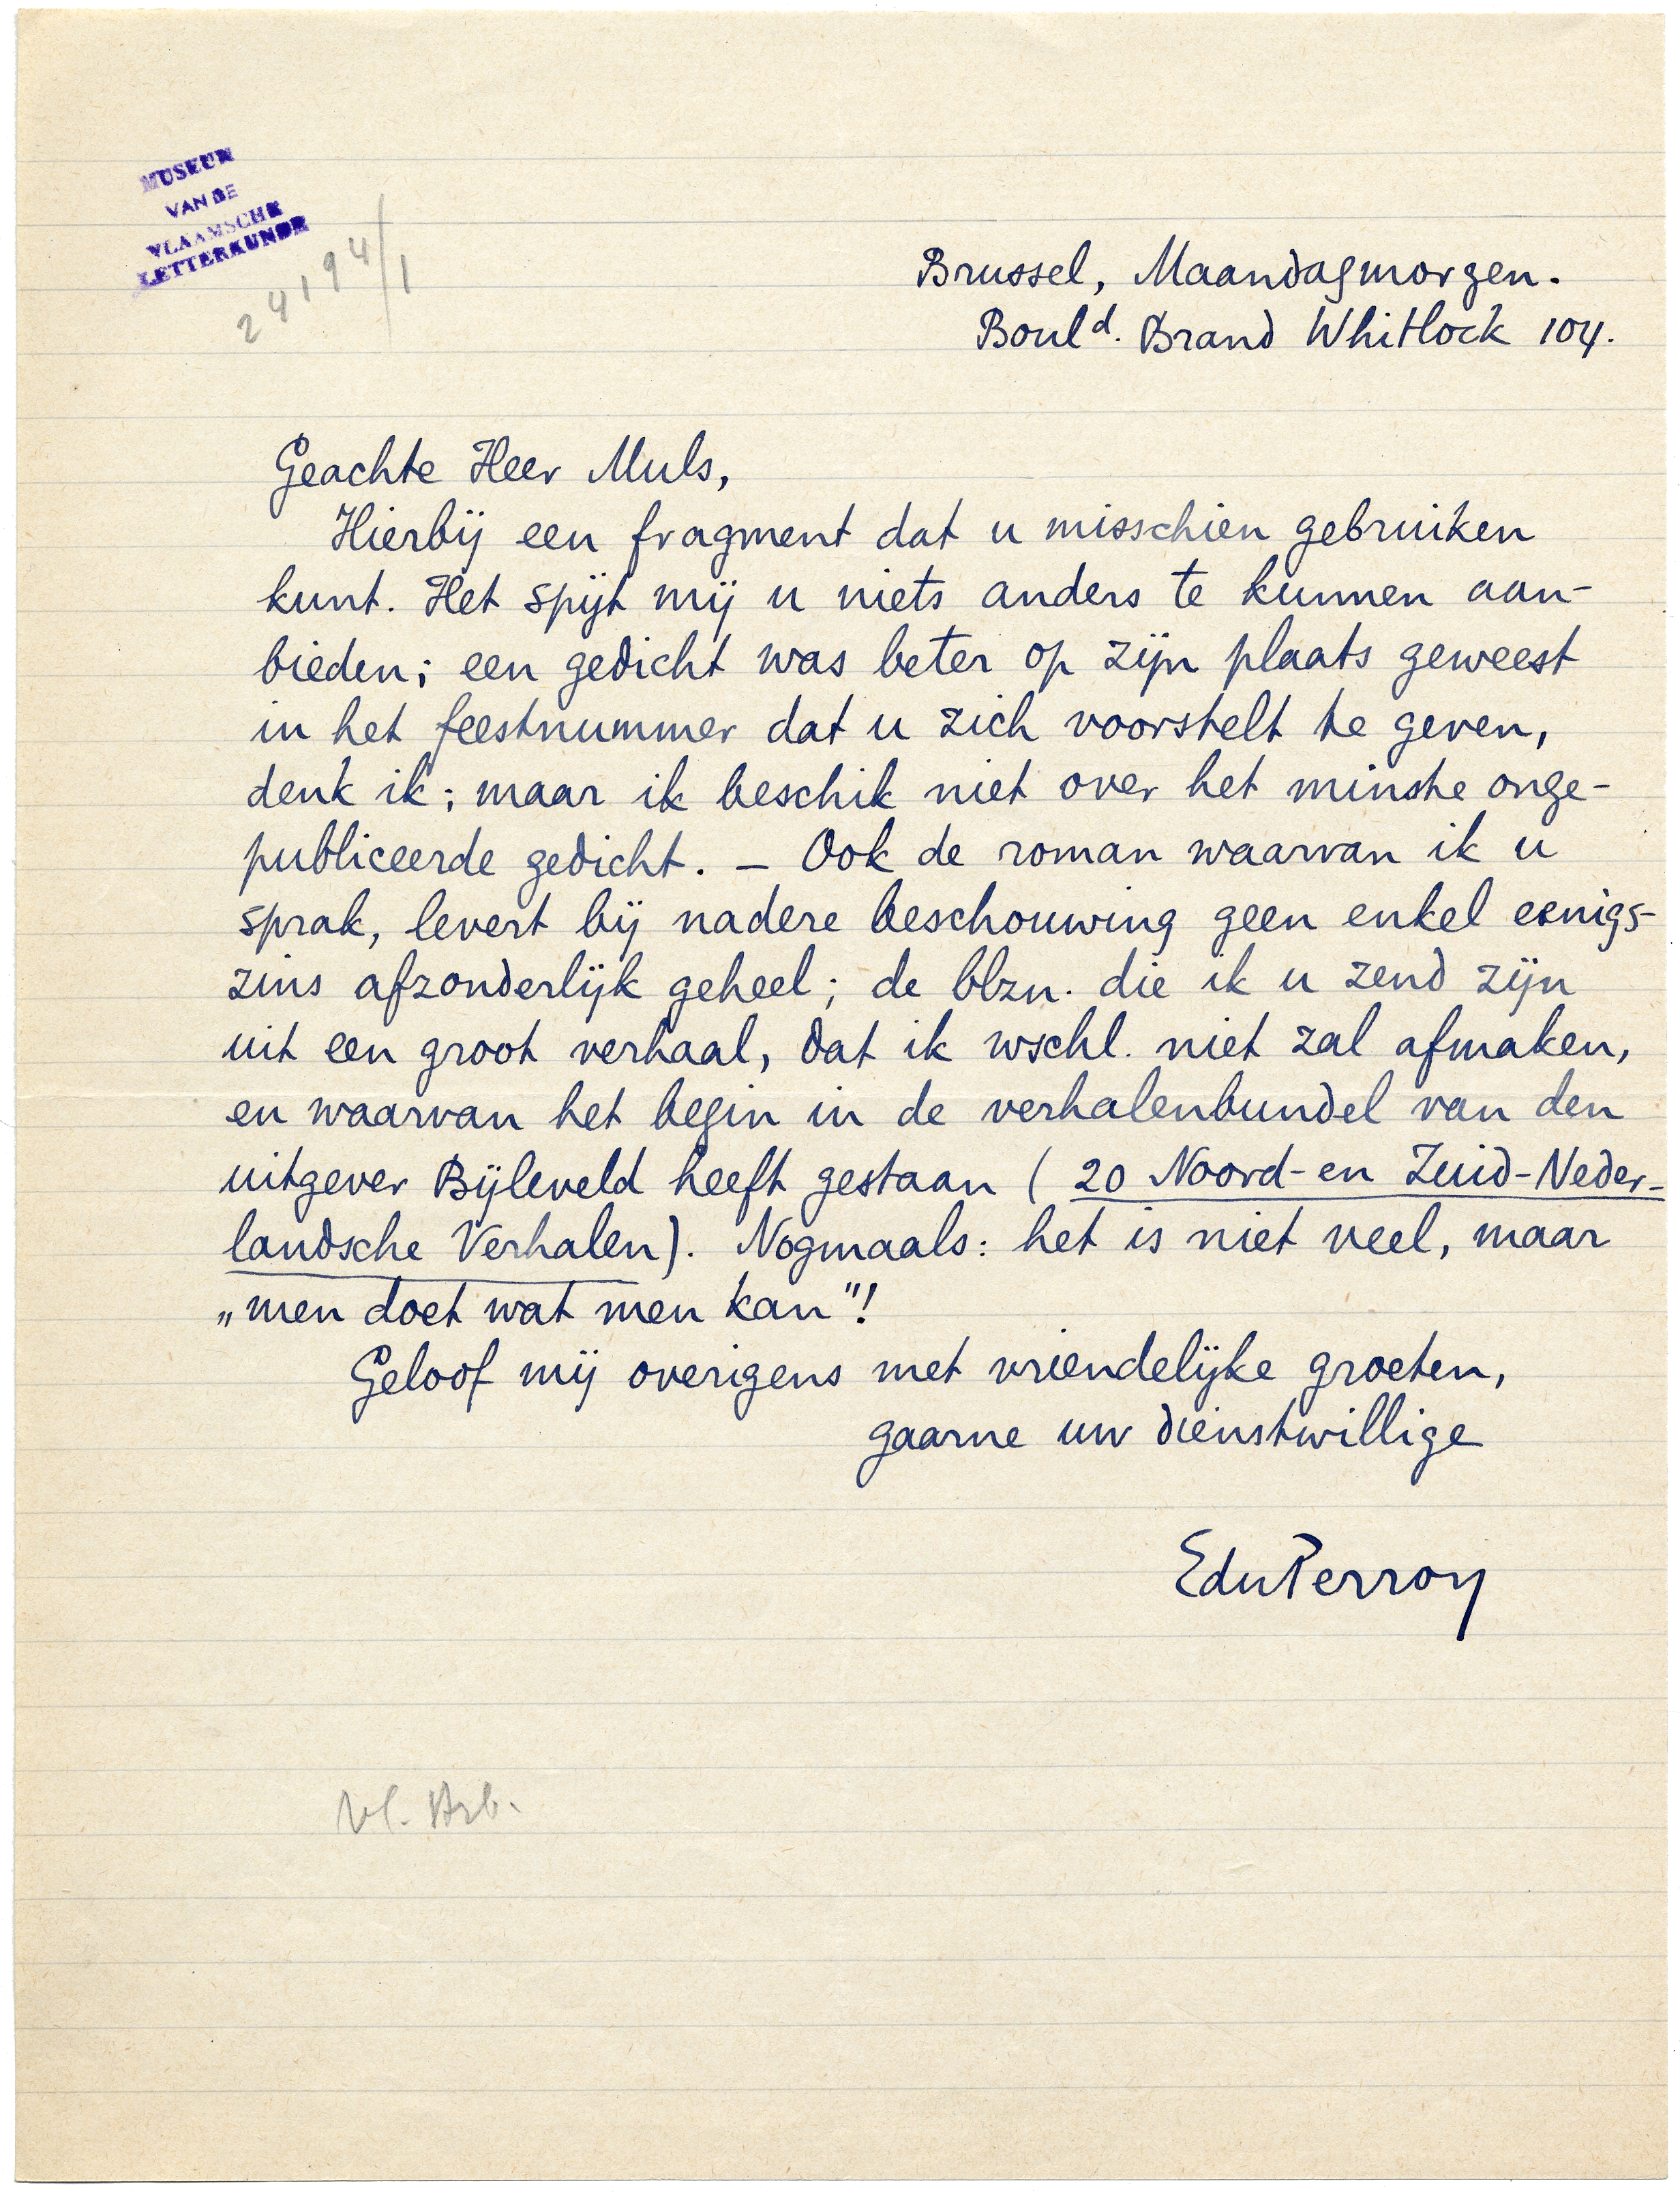 MUSEUM
VAN DE
VLAAMSCHE
LETTERKUNDE
24194/1
Brussel, Maandagmorgen.
Boul<sup>d</sup>. Brand Whitlock 104.
Geachte Heer Muls,
Hierbij een fragment dat u misschien gebruiken
kunt. Het spijt mij u niets anders te kunnen aan-
bieden; een gedicht was beter op zijn plaats geweest
in het feestnummer dat u zich voorstelt te geven,
denk ik; maar ik beschik niet over het minste onge-
publiceerde gedicht. – Ook de roman waarvan ik u
sprak, levert bij nadere beschouwing geen enkel eenigs-
zins afzonderlijk geheel; de blzn. die ik u zend zijn
uit een groot verhaal, dat ik wschl. niet zal afmaken,
en waarvan het begin in de verhalenbundel van den
uitgever Bijleveld heeft gestaan (20 Noord- en Zuid-Neder-
landsche Verhalen). Nogmaals: het is niet veel, maar
„men doet wat men kan"!
Geloof mij overigens met vriendelijke groeten,
gaarne uw dienstwillige
EduPerron
Vl. Arb.